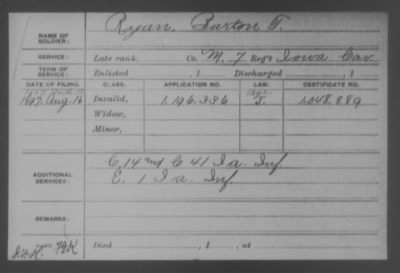 NAME OF SOLDIER: Ryan, Barton T.
SERVICE: Late rank, Co. M, 7 Reg't Iowa Cav.
TERM OF SERVICE: Enlisted , 1 Discharged , 1
DATE OF FILING. CLASS. APPLICATION NO. LAW. CERTIFICATE NO.
1897. Aug. 16 Invalid, 1.196.336 1048.889
Widow,
Minor,
ADDITIONAL SERVICES: C, 14 and C 41 Ia. Inf.
E. 1 Ia. Inf.
REMARKS:
Died , 1 , at